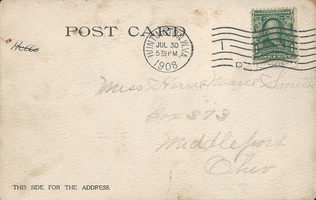 POST CARD
Hello
HUNTINGTON, W.VA.
JUL 30
5 30 PM
1908
1
D
Miss Marie Smith
Box 373
Middleport
Ohio
THIS SIDE FOR THE ADDRESS.